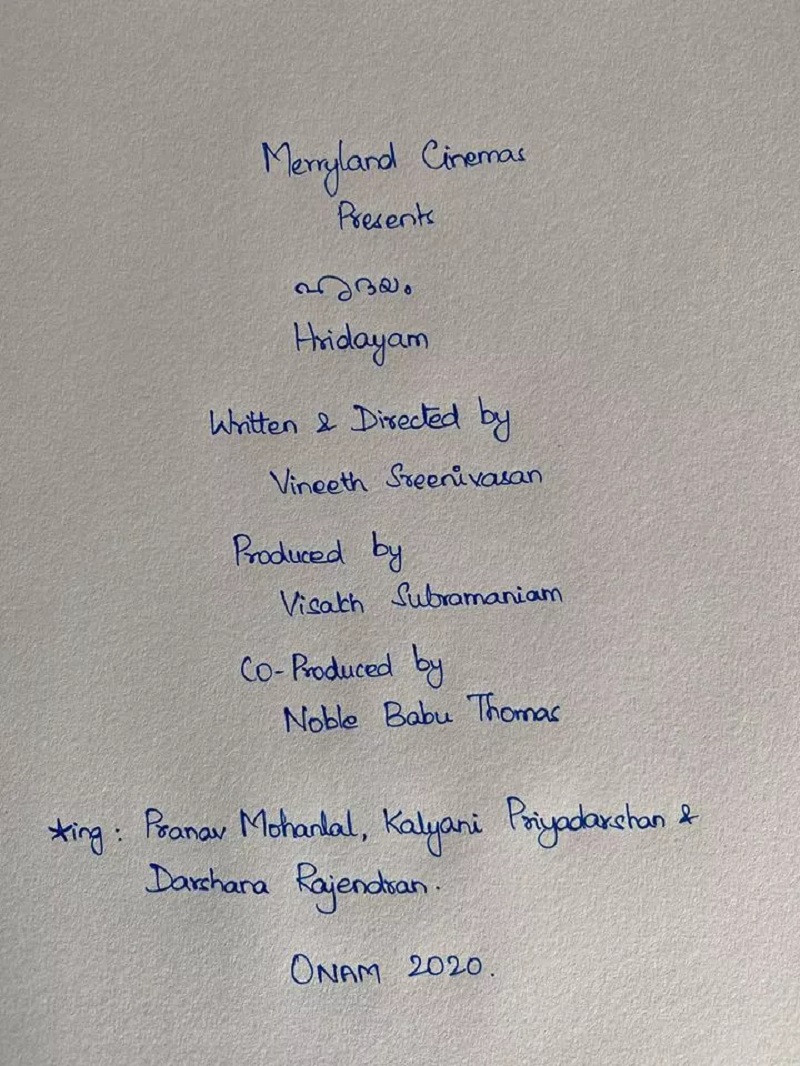 Merryland Cinemas
Presents
ഹൃദയം
Hridayam
Written & Directed by
Vineeth Sreenivasan
Produced by
Visakh Subramaniam
Co-Produced by
Noble Babu Thomas
*ing: Pranav Mohanlal, Kalyani Priyadarshan &
Darshana Rajendran.
ONAM 2020.